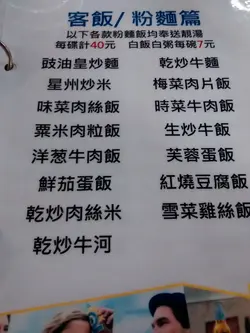 客飯/粉麵篇
以下各款粉麵飯均奉送靚湯
每碟計40元 白飯白粥每碗7元
豉油皇炒麵 乾炒牛麵
星州炒米 梅菜肉片飯
味菜肉絲飯 時菜牛肉飯
粟米肉粒飯 生炒牛飯
洋葱牛肉飯 芙蓉蛋飯
鮮茄蛋飯 紅燒豆腐飯
乾炒肉絲米 雪菜雞絲飯
乾炒牛河